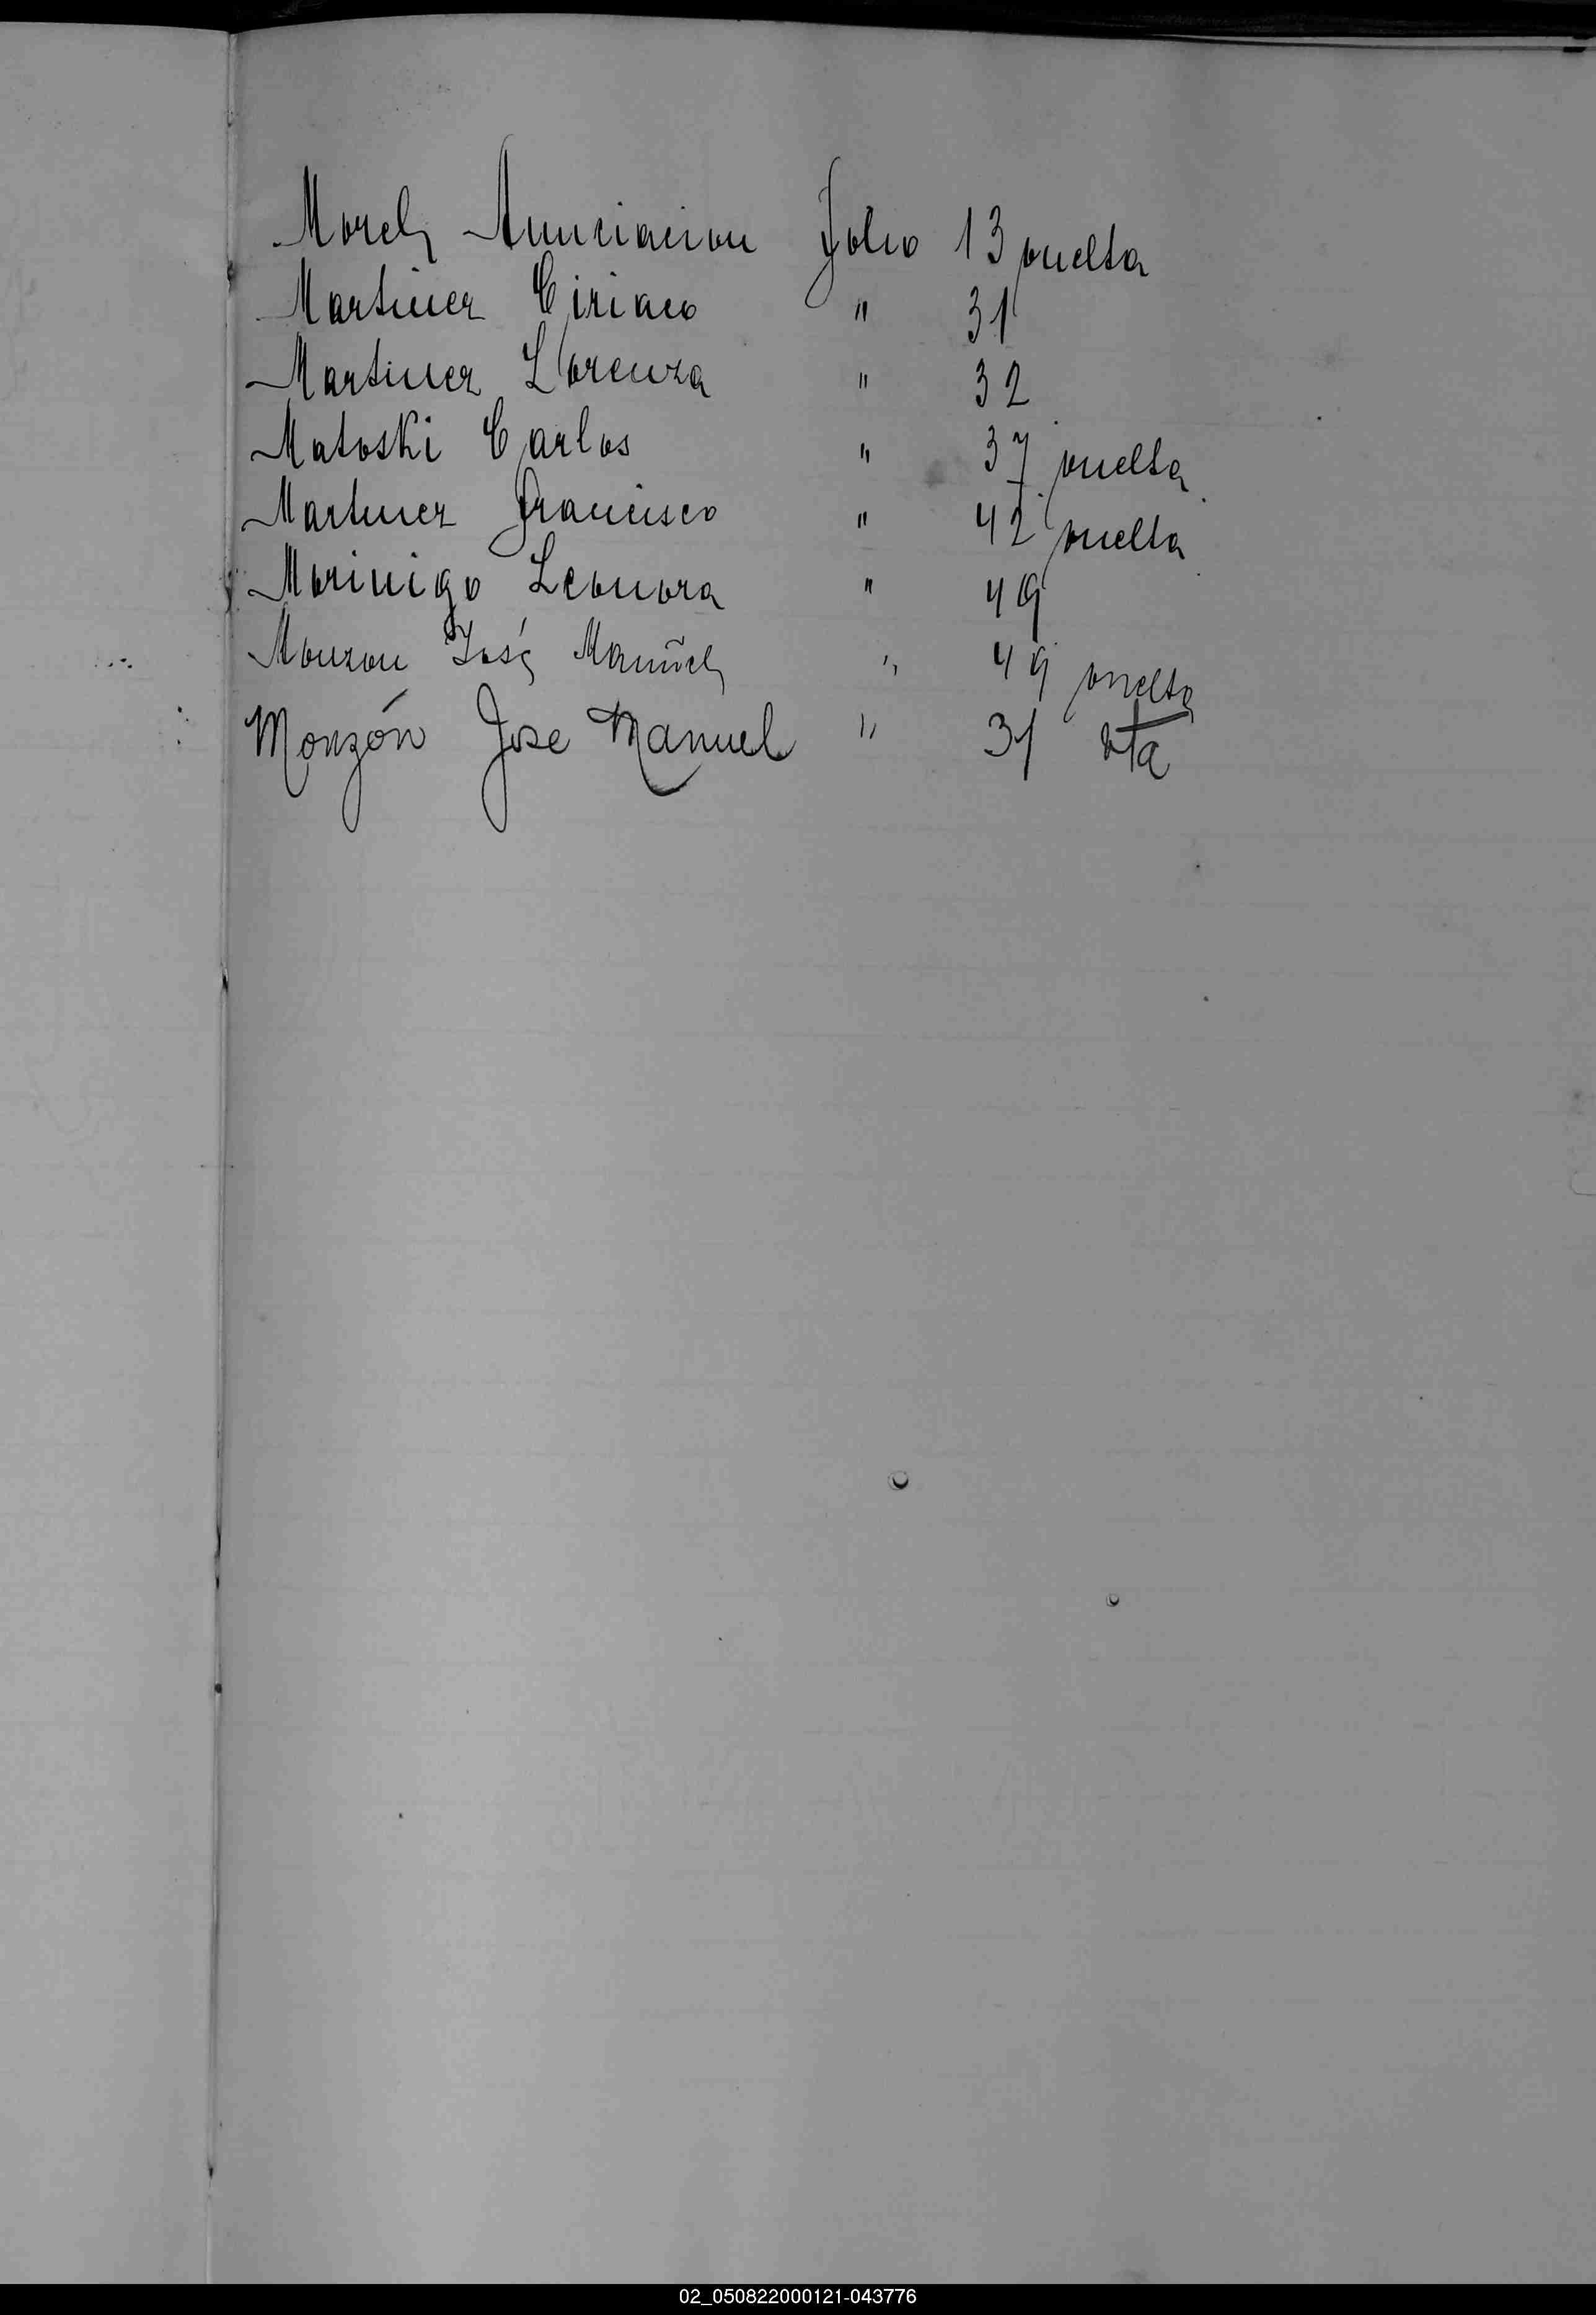 Morel Anunciacion Folio 13 vuelta
Martinez Ciriaco " 31
Martinez Lorenza " 32
Matoski Carlos " 37 vuelta
Martinez Francisco " 42 vuelta
Morinigo Leonora " 49
Monzon José Manuel " 49 vuelta
Monzón Jose Manuel " 31 vta
02_050822000121-043776